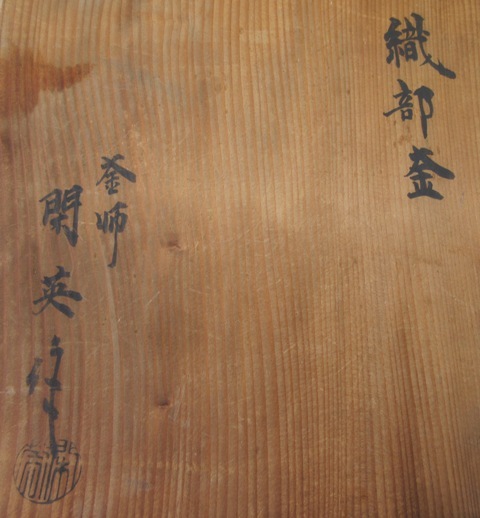 織部釜
釜師
関英